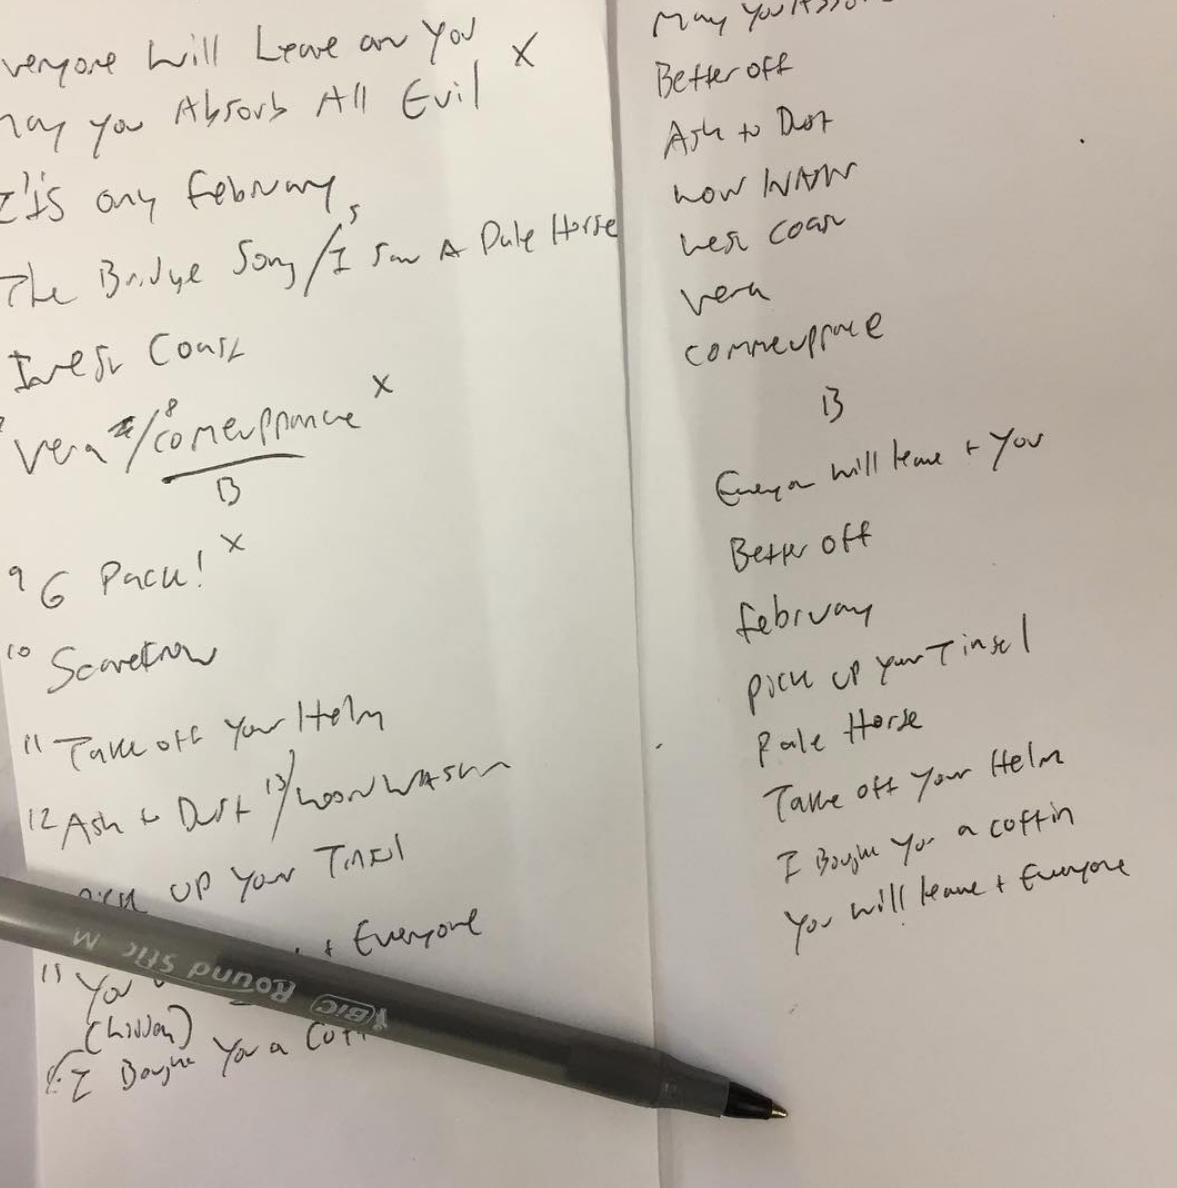 veryone Will Leave and You X
may you Absorb All Evil
It's only February
The Bridge Song/5 I Saw A Pale Horse
West Coast
Vera /8 Comeuppance X
B
9 6 Pack! X
10 Scarecrow
11 Take off Your Helm
12 Ash to Dust 13/
pick up your Tinsel
+ Everyone
15 You
(hidden)
I Bought You a Coff
Round Stic M
BIC
May You Abso
Better off
Ash to Dust
West Coast
Vera
Commeuppance
B
Everyone will leave + You
Better off
February
pick up your Tinsel
Pale Horse
Take off Your Helm
I Bought You a coffin
You will leave + Everyone